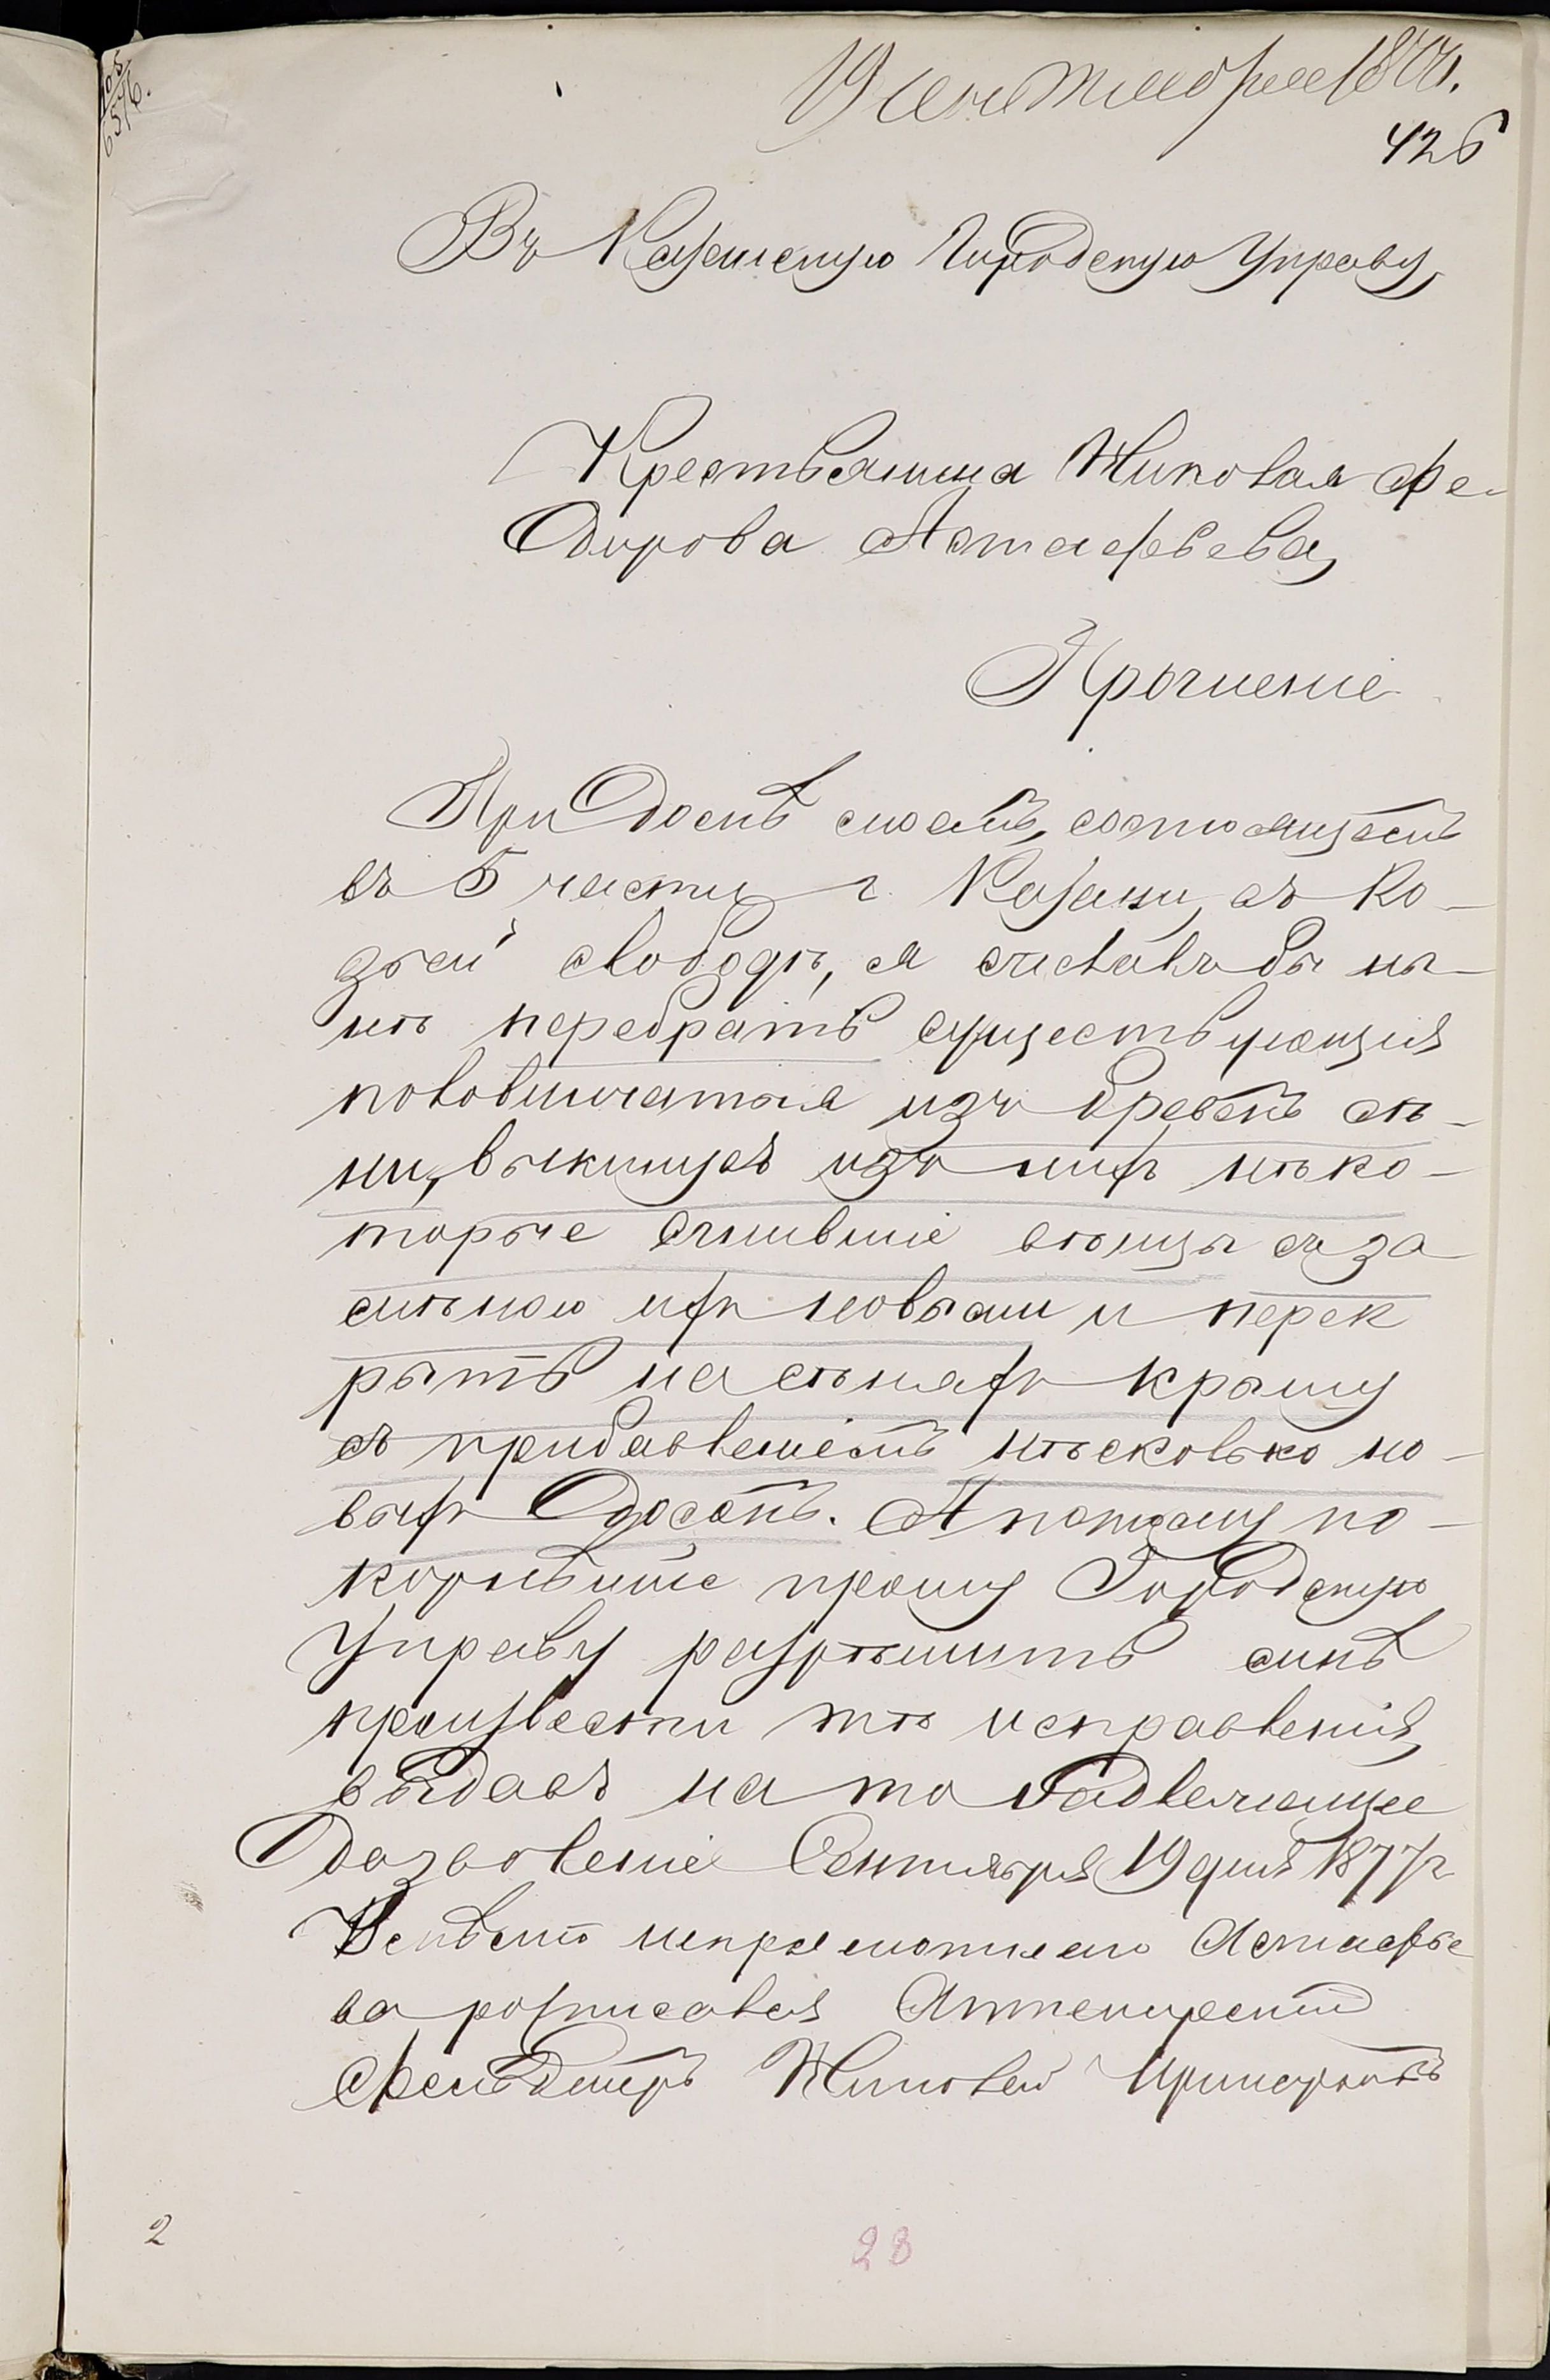 19 сентября 1877.
426
Въ Казанскую Городскую Управу,
Крестьянина Николая Фе-
дорова Астафьева,
Прошеніе
При домѣ моемъ, состоящемъ
въ 5 части г. Казани, въ Ко-
зьей слободѣ, я желалъ бы ны-
нѣ перебрать существующія
половинчатыя изъ бревенъ сѣ-
ни, выкинувъ изъ нихъ нѣко-
торые сгнившіе вѣнцы съ за
мѣною ихъ новыми и перек
рыть на сѣняхъ крышу
съ прибавленіемъ нѣсколько но-
выхъ досокъ. А потому по-
корнѣйше прошу Городскую
Управу разрѣшить мнѣ
произвести тѣ исправленія,
выдавъ на то надлежащее
дозволеніе Сентября 19 дня 1877 г
неграмотнаго Астафье
ва росписался
фельдшеръ Николай
2
28